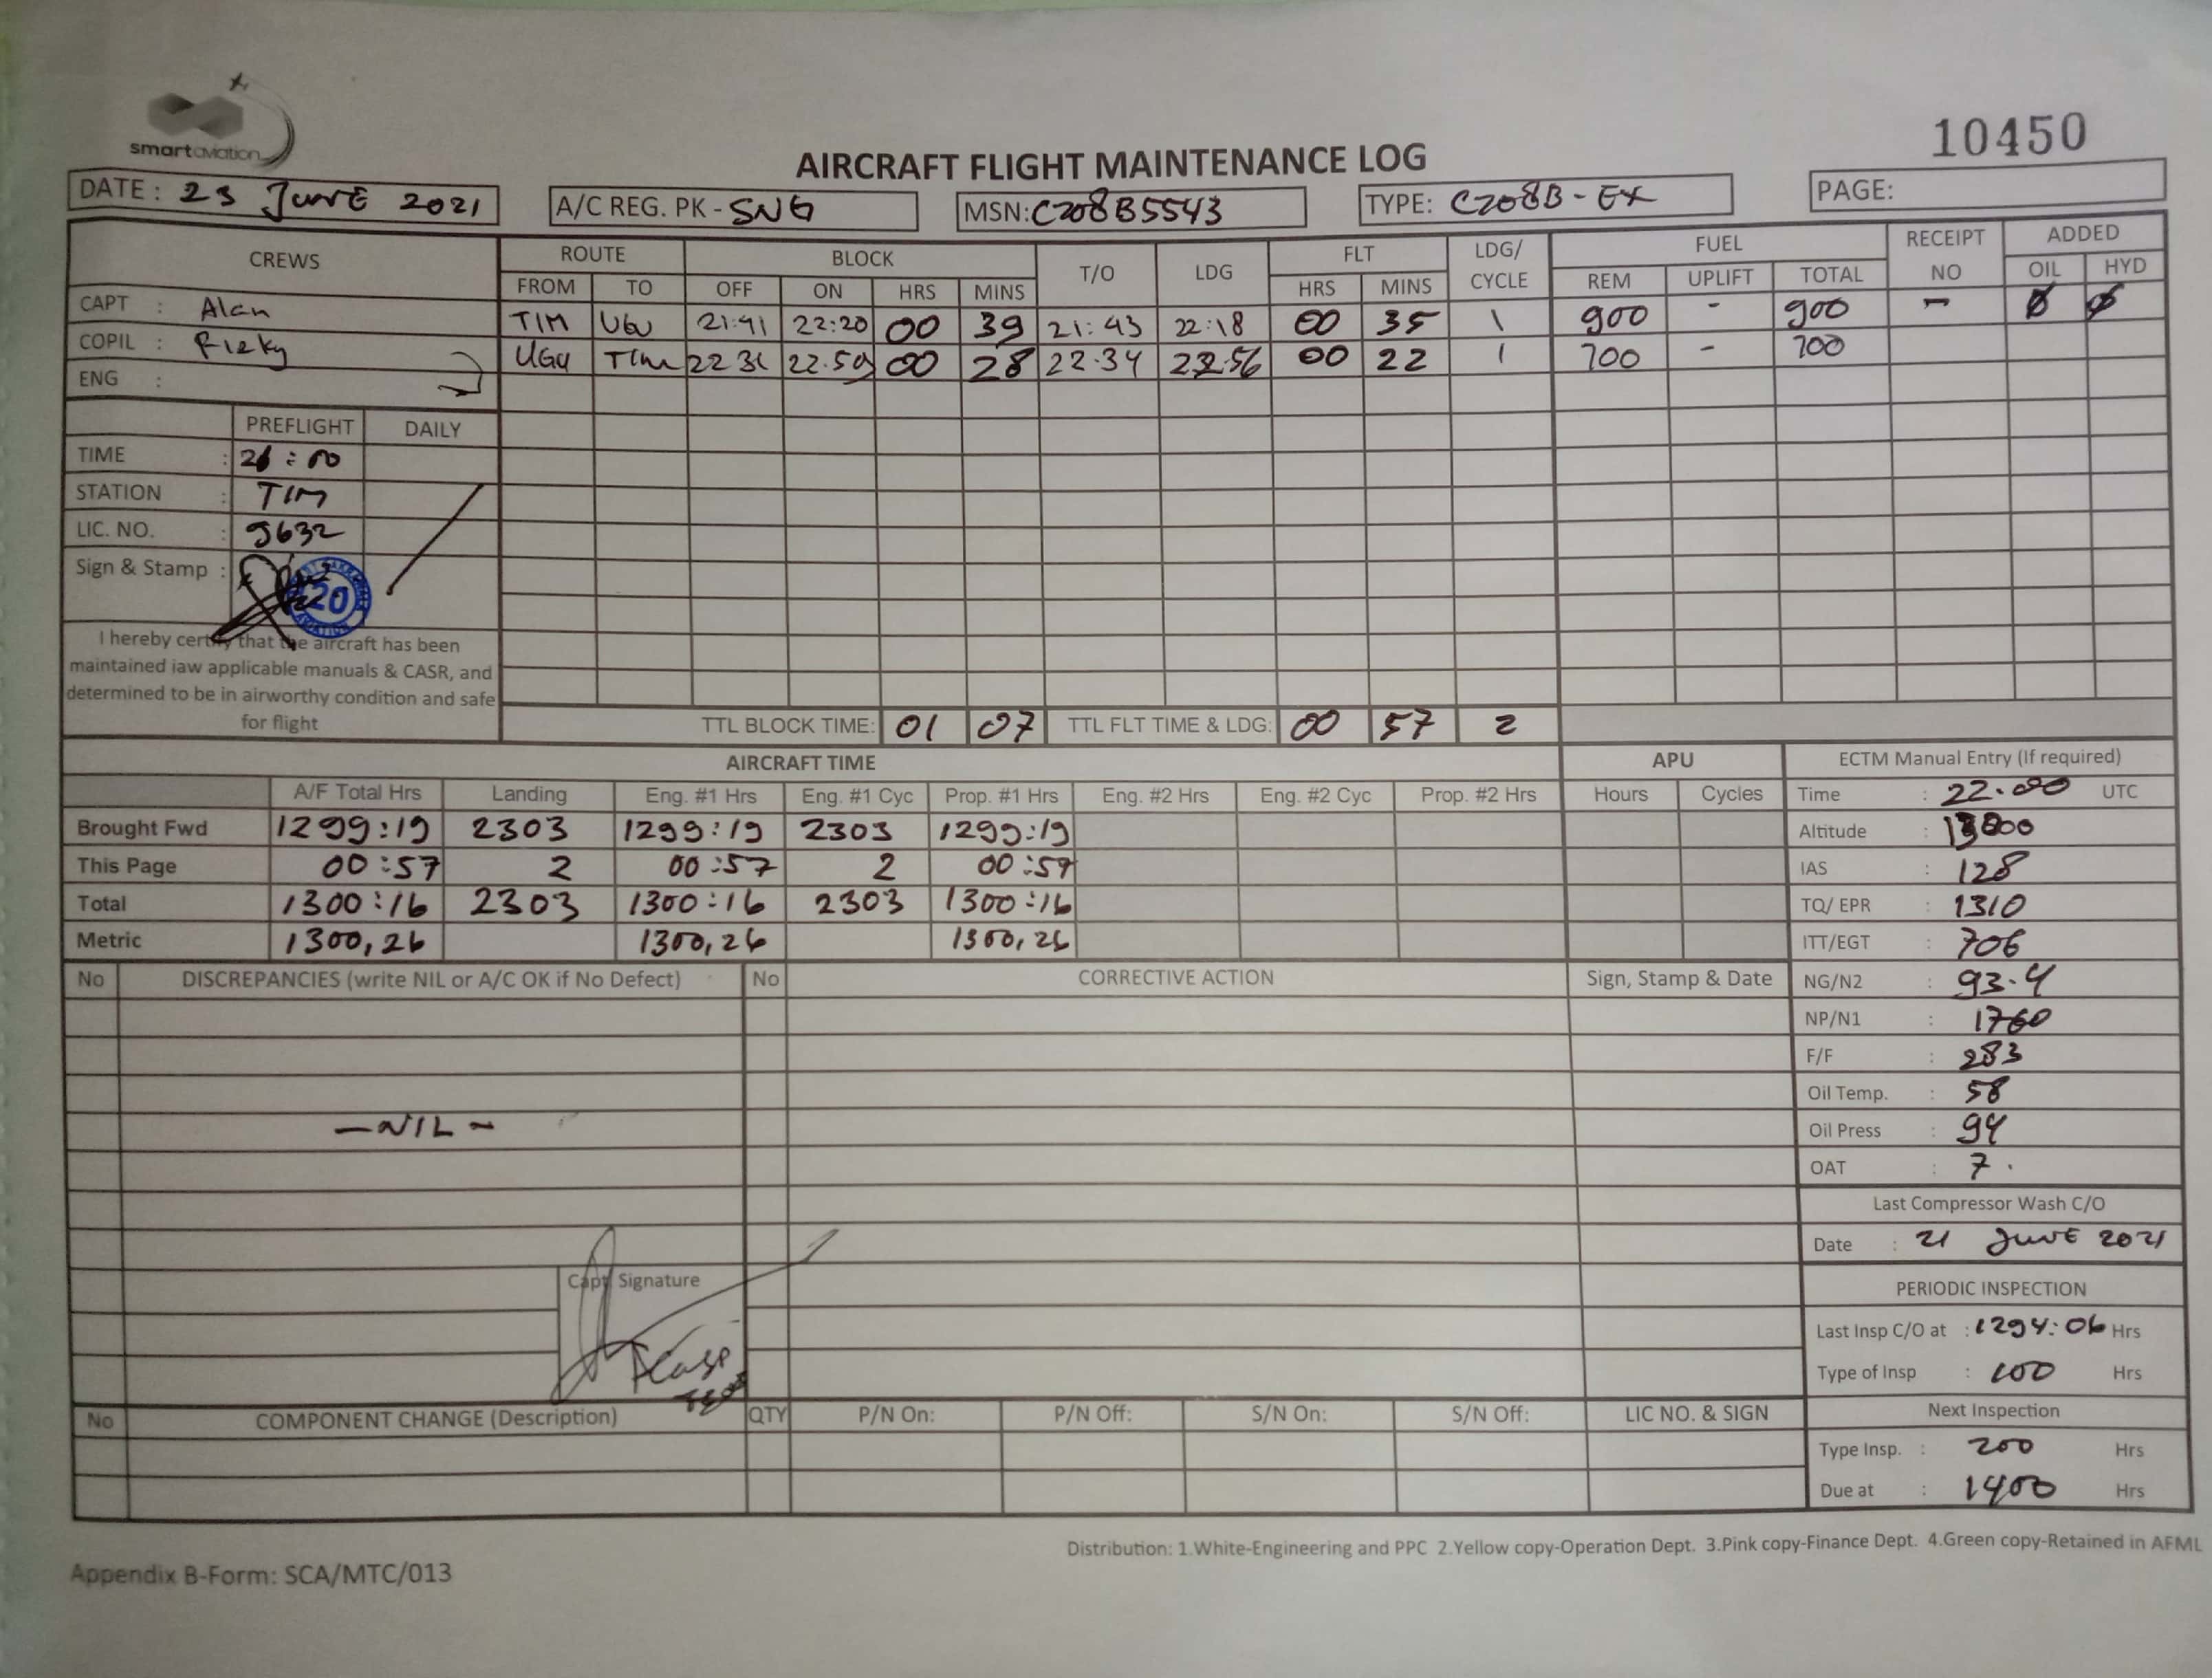 smart aviation
10450
AIRCRAFT FLIGHT MAINTENANCE LOG
DATE : 23 JUNE 2021 A/C REG. PK - SNG MSN: C208B5543 TYPE: C208B - EX PAGE:
CREWS ROUTE BLOCK T/O LDG FLT LDG/ CYCLE FUEL RECEIPT NO ADDED
FROM TO OFF ON HRS MINS HRS MINS REM UPLIFT TOTAL OIL HYD
CAPT : Alan
TIM UGU 21:41 22:20 00 39 21:43 22:18 00 35 1 900 - 900 - Ø Ø
COPIL : Rizky
UGU TIM 22 31 22.59 00 28 22.34 22.56 00 22 1 700 - 700
ENG :
PREFLIGHT DAILY
TIME : 21 : 00
STATION : TIM
LIC. NO. : 9632
Sign & Stamp :
20
I hereby certify that the aircraft has been
maintained iaw applicable manuals & CASR, and
determined to be in airworthy condition and safe
for flight
TTL BLOCK TIME: 01 07 TTL FLT TIME & LDG: 00 57 2
AIRCRAFT TIME APU ECTM Manual Entry (If required)
A/F Total Hrs Landing Eng. #1 Hrs Eng. #1 Cyc Prop. #1 Hrs Eng. #2 Hrs Eng. #2 Cyc Prop. #2 Hrs Hours Cycles Time : 22.00 UTC
Brought Fwd 1299:19 2303 1299:19 2303 1299:19 Altitude :
This Page 00:57 2 00:57 2 00:57 IAS : 128
Total 1300:16 2303 1300:16 2303 1300:16 TQ/ EPR : 1310
Metric 1300,26 1300,26 1300,26 ITT/EGT : 706
No DISCREPANCIES (write NIL or A/C OK if No Defect) No CORRECTIVE ACTION Sign, Stamp & Date NG/N2 : 93.4
NP/N1 : 1760
F/F : 283
Oil Temp. : 58
- NIL - Oil Press : 94
OAT : 7.
Last Compressor Wash C/O
Date : 21 JUNE 2021
Capt Signature
PERIODIC INSPECTION
Last Insp C/O at : 1294:06 Hrs
Type of Insp : 100 Hrs
No COMPONENT CHANGE (Description) QTY P/N On: P/N Off: S/N On: S/N Off: LIC NO. & SIGN Next Inspection
Type Insp. : 200 Hrs
Due at : 1400 Hrs
Distribution: 1.White-Engineering and PPC 2.Yellow copy-Operation Dept. 3.Pink copy-Finance Dept. 4.Green copy-Retained in AFML
Appendix B-Form: SCA/MTC/013